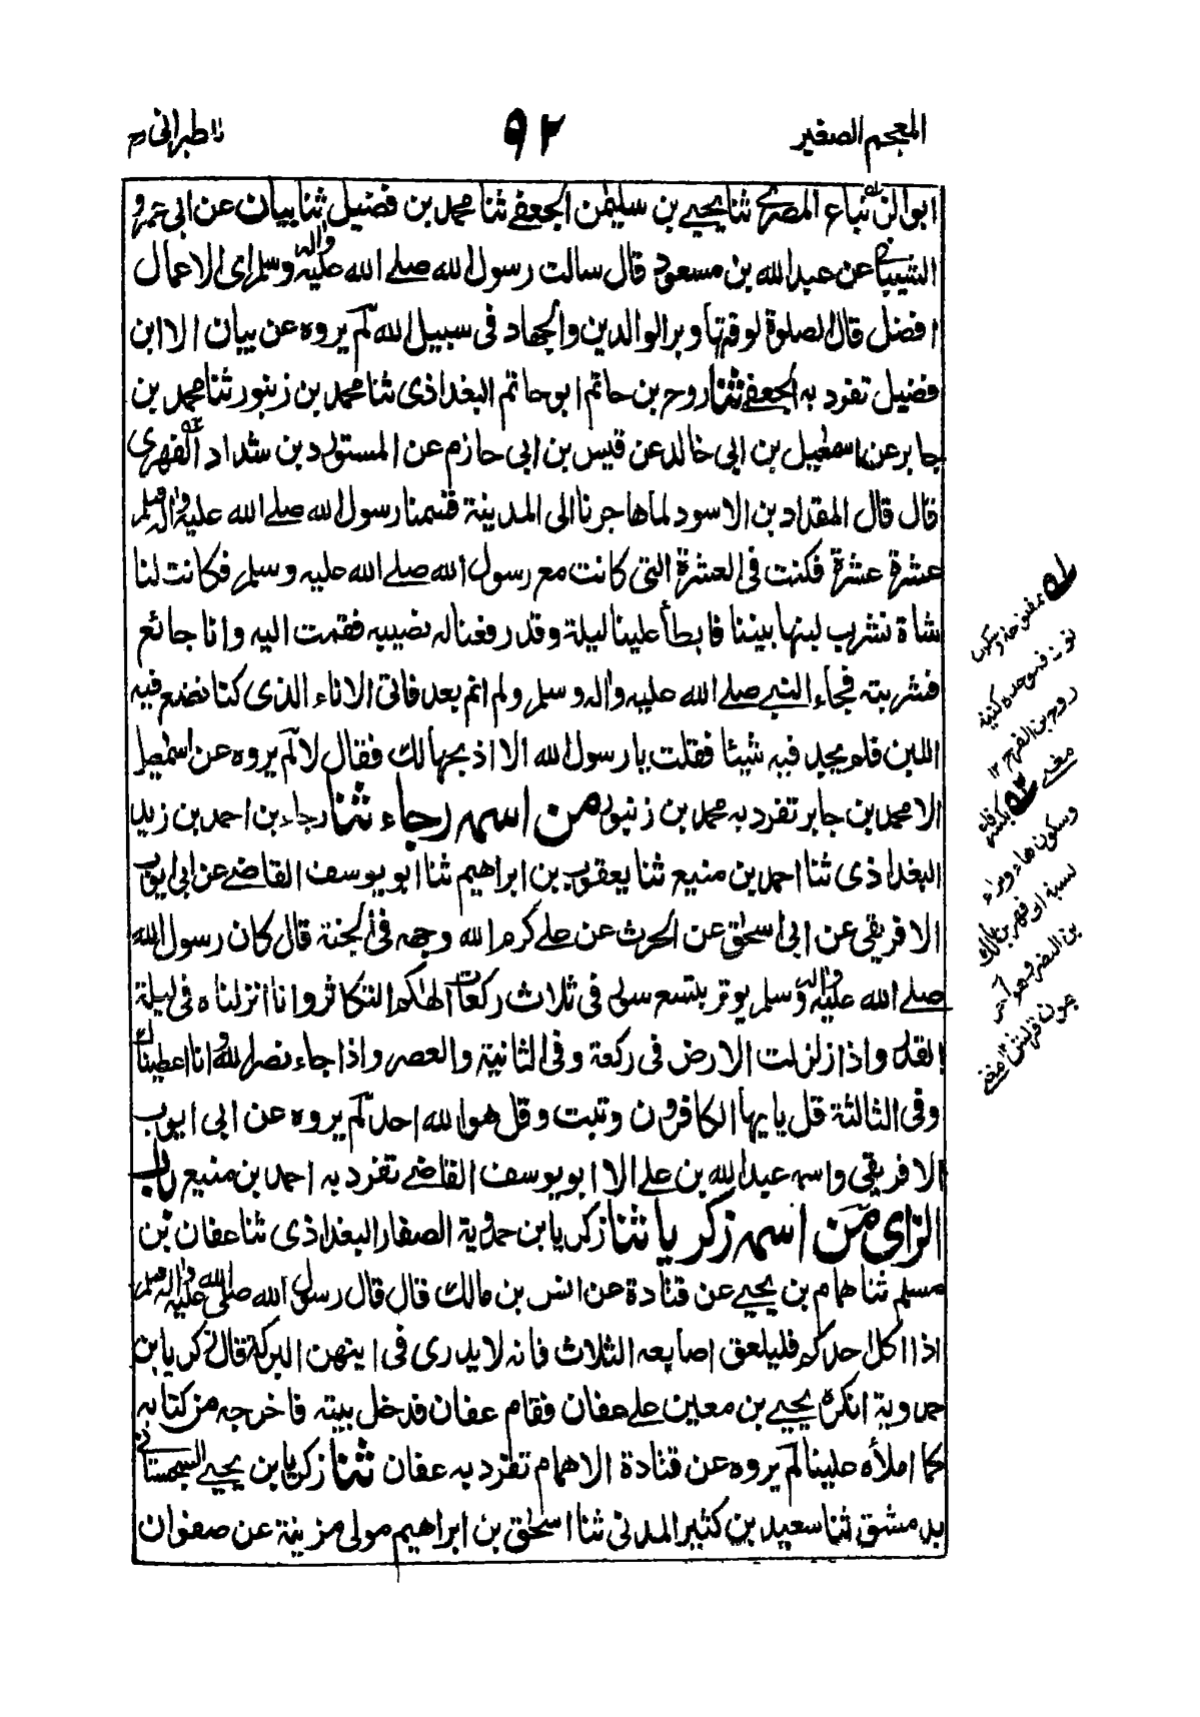 المعجم الصغير
٩٢
للطبرانی رح
ابو الزنباع المصری ثنا یحیے بن سلیمن الجعفے ثنا محمد بن فضیل ثنا بیان عن ابی عمرو
الشیبانی عن عبد الله بن مسعود قال سالت رسول الله صلے الله علیه واٰله وسلم ای الاعمال
افضل قال الصلوة لوقتها و بر الوالدین والجهاد فی سبیل الله لم یروه عن بیان الا ابن
فضیل تفرد به الجعفے ثنا روح بن حاتم ابو حاتم البغداذی ثنا محمد بن زنبور ثنا محمد بن
جابر عن اسمٰعیل بن ابی خالد عن قیس بن ابی حازم عن المستورد بن شداد الفهری
قال قال المقداد بن الاسود لما هاجرنا الی المدینة قسمنا رسول الله صلے الله علیه واٰله وسلم
عشرة عشرة فکنت فی العشرة التی کانت مع رسول الله صلے الله علیه وسلم فکانت لنا
شاة نشرب لبنها بیننا فابطأ علینا لیلة وقد رفعنا له نصیبه فقمت الیه وانا جائع
فشربته فجاء النبے صلے الله علیه واٰله وسلم ولم انم بعد فاتی الاناء الذی کنا نضع فیه
اللبن فلم یجد فیه شیئا فقلت یا رسول الله الا اذبحها لك فقال لا لم یروه عن اسمٰعیل
الا محمد بن جابر تفرد به محمد بن زنبور من اسمه رجاء ثنا رجاء بن احمد بن زید
البغداذی ثنا احمد بن منیع ثنا یعقوب بن ابراهیم ثنا ابو یوسف القاضے عن ابی ایوب
الافریقی عن ابی اسحٰق عن الحرث عن علے کرم الله وجهه فی الجنة قال کان رسول الله
صلے الله علیه واٰله وسلم یوتر بتسع سور فی ثلاث رکعات الهٰکم التکاثر وانا انزلناه فی لیلة
القدر واذا زلزلت الارض فی رکعة وفی الثانیة والعصر واذا جاء نصر الله وانا اعطیناك
وفی الثالثة قل یایها الکافرون وتبت وقل هو الله احد لم یروه عن ابی ایوب
الافریقی واسمه عبد الله بن علے الا ابو یوسف القاضے تفرد به احمد بن منیع باب
الزای من اسمه زکریا ثنا زکریا بن حمدویة الصفار البغداذی ثنا عفان بن
مسلم ثنا همام بن یحیے عن قتادة عن انس بن مالك قال قال رسول الله صلی الله علیه واٰله وسلم
اذا اکل احدکم فلیلعق اصابعه الثلاث فانه لا یدری فی ایتهن البرکة قال زکریا بن
حمدویة انکره یحیے بن معین علے عفان فقام عفان فدخل بیته فاخرجه من کتابه
کما املأه علینا لم یروه عن قتادة الا همام تفرد به عفان ثنا زکریا بن یحیے السجستانی
بدمشق ثنا سعید بن کثیر المدنی ثنا اسحٰق بن ابراهیم مولی مزینة عن صفوان
سکون
نون فموحدة کنیة
روح بن الفرج ١٢
مغنے بکسر فاء
وسکون هاء وبراء
نسبة الی فهر بن مالك
بن النضر وهو
قریش ١٢ مغنے